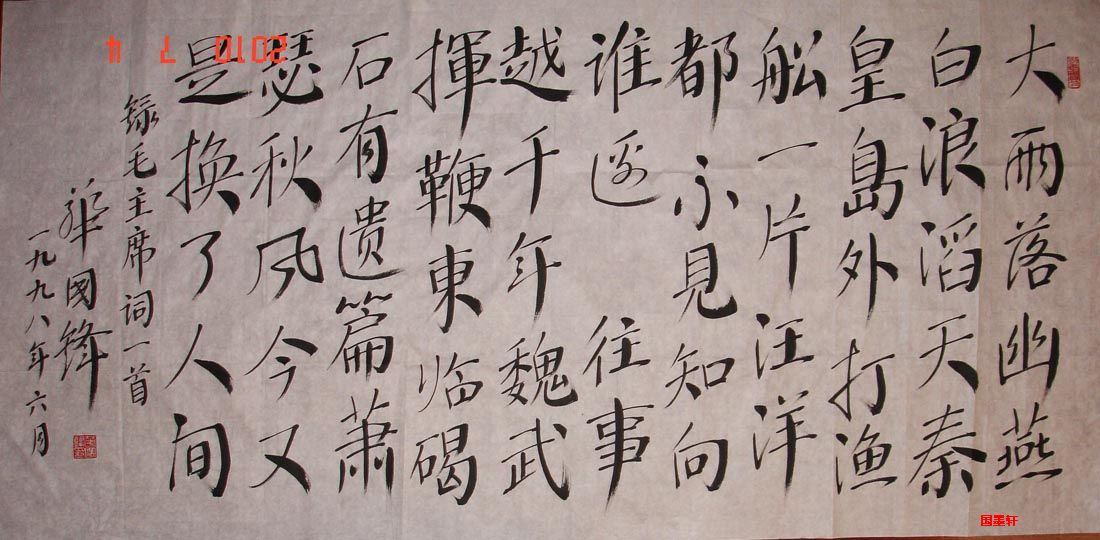 大雨落幽燕
白浪滔天秦
皇島外打渔
船一片汪洋
都不見知向
谁邊 往事
越千年魏武
揮鞭東临碣
石有遗篇蕭
瑟秋风今又
是换了人间
録毛主席词一首
華國鋒
一九九八年六月
2010 7 4
国墨轩